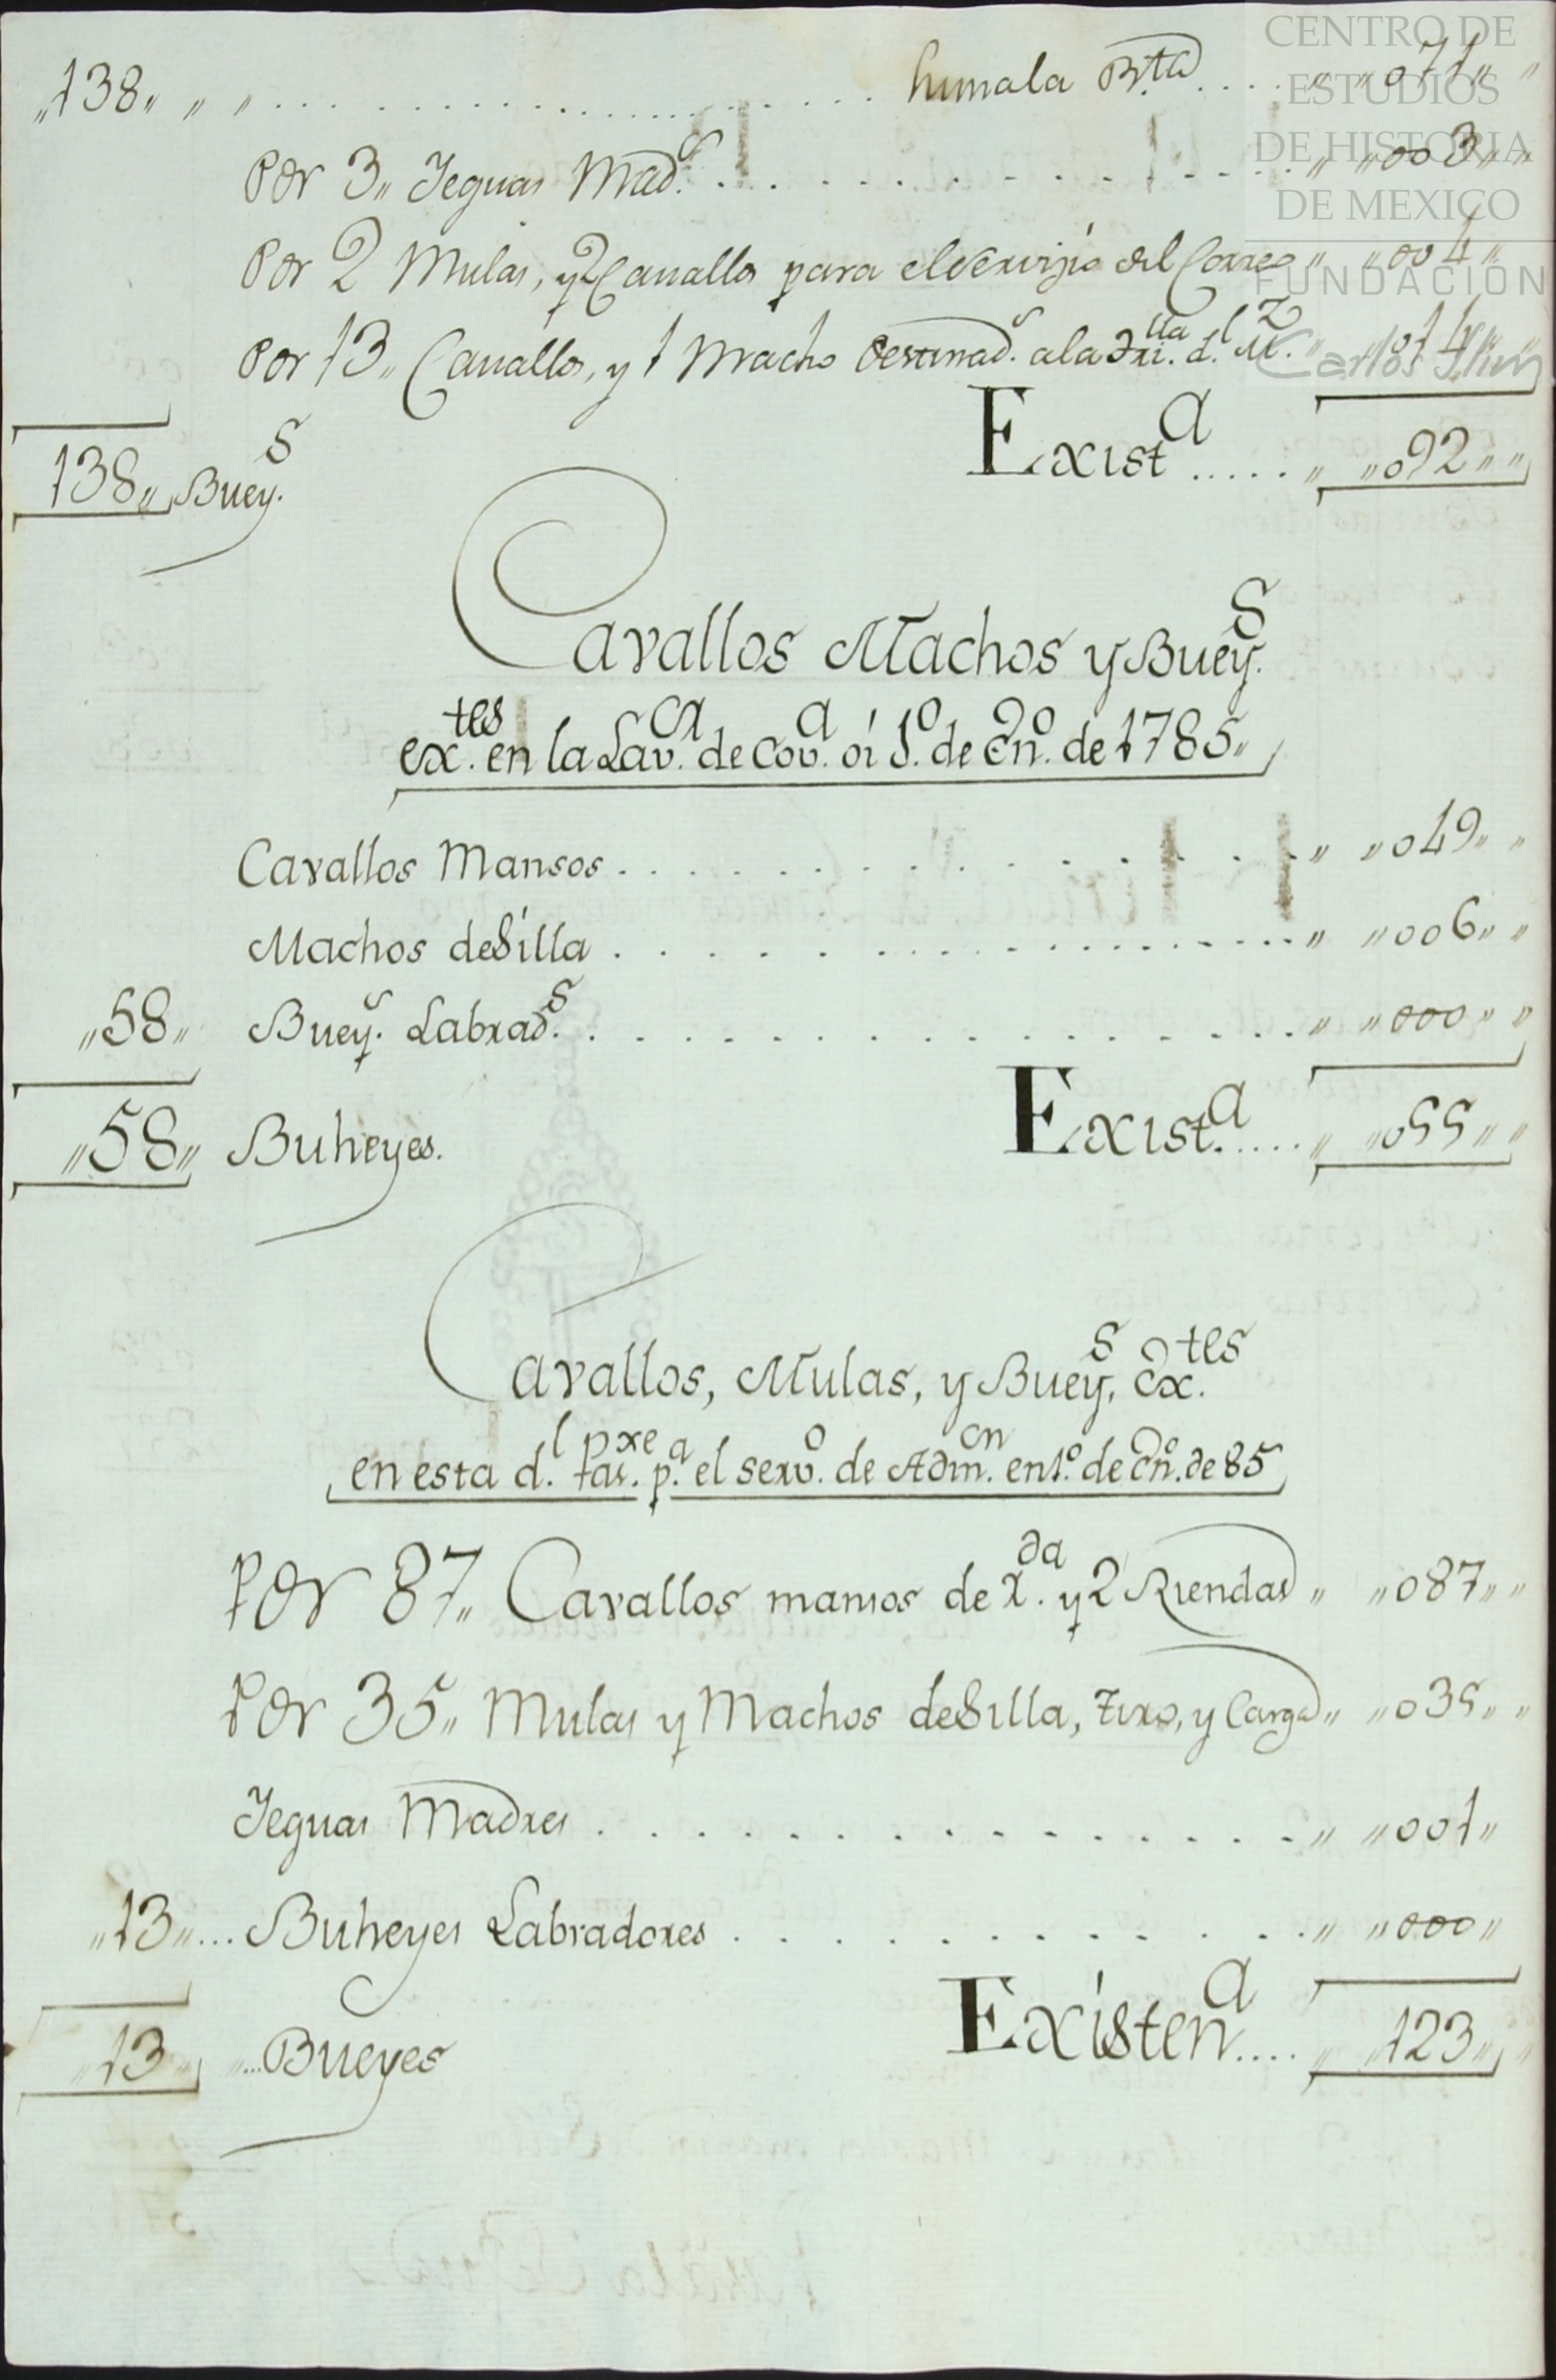 „138„ „ „ humala B.ta „ „071„ „
Por 3„ Jeguas Mad.s „ „003„ „
Por 2 Mulas, y 2 Cauallos para el servisio del Correo „ „004„
Por 13„ Cauallos, y 1 Macho destinad.s a la d.l „014„
Exist.a „ „092„ „
138„ Buey.s
Cavallos Machos y Buey.s
ex.tes en la Lav.ca de Cov.a oi 1.o de En.o de 1785„
Cavallos Mansos „ „049„ „
Machos de Silla „ „006„ „
„58„ Buey.s Labrad.s „ „000„ „
Exist.a „ „055„ „
„58„ Buheyes.
Cavallos, Mulas, y Buey.s Ex.tes
en esta d.l p.a el serv.o de Adm.cn en 1.o de En.o de 85
Por 87„ Cavallos mansos de 1.da y 2 Riendas „ „087„ „
Por 35„ Mulas y Machos de Silla, tiro, y Carga „ „035„ „
Jeguas Madres „ „001„
„13„ Buheyes Labradores „ „000„
Existen.a „ „123„ „
„13„ Bueyes
CENTRO DE
ESTUDIOS
DE HISTORIA
DE MEXICO
FUNDACIÓN
Carlos Slim